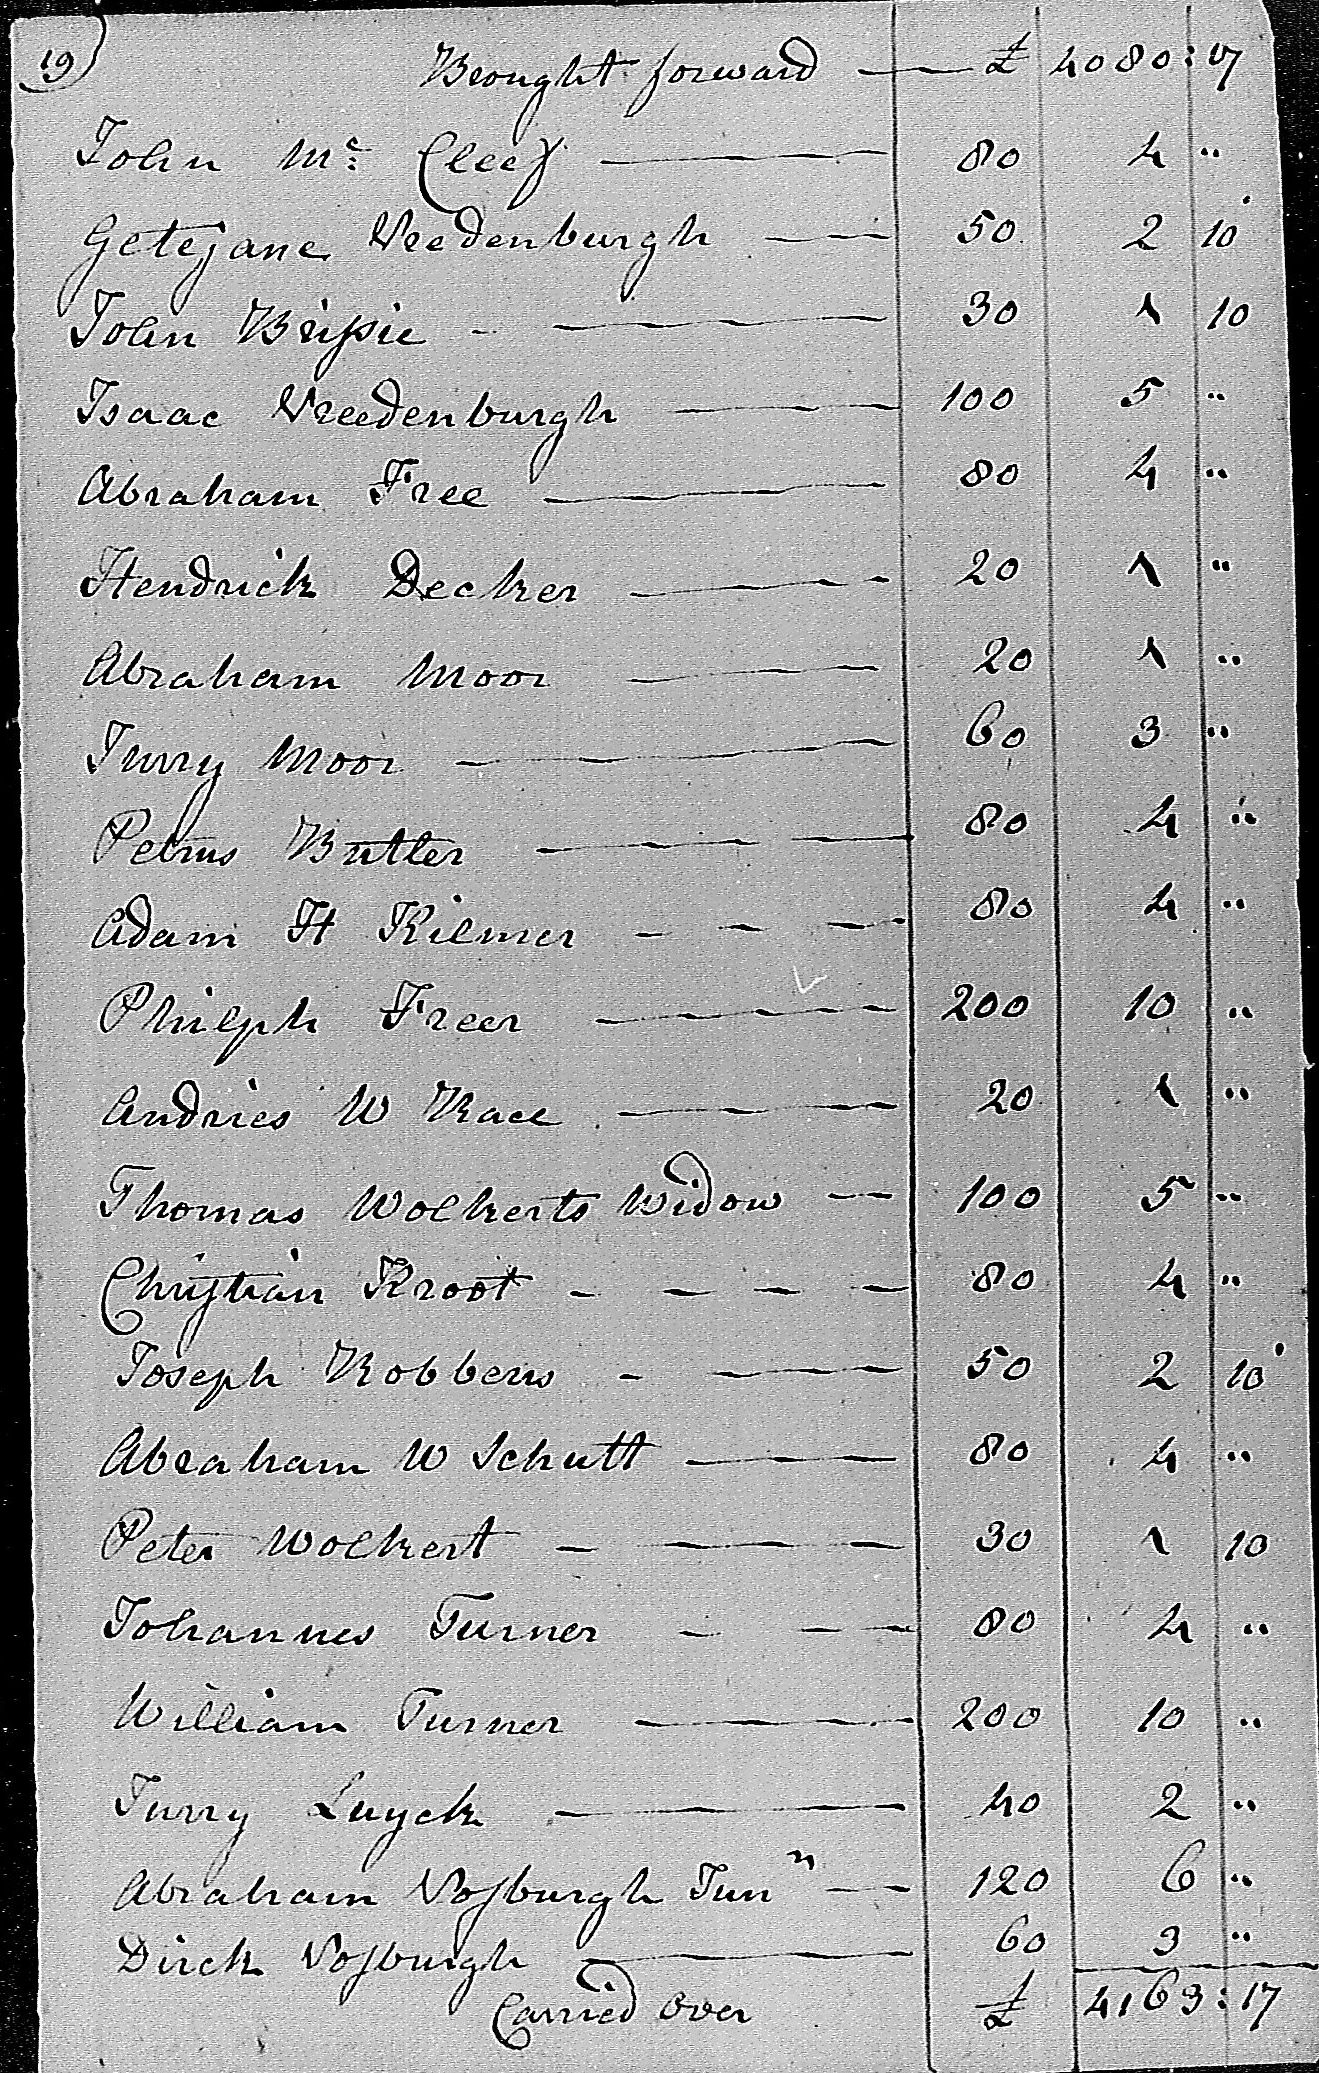 19)
Brought forward £ 4080:17
John Mc Cleef 80 4 "
Getejane Vredenburgh 50 2 10
John Brissie 30 1 10
Isaac Vreedenburgh 100 5 "
Abraham Free 80 4 "
Hendrick Decker 20 1 "
Abraham Moor 20 1 "
Jurry Moor 60 3 "
Petrus Butler 80 4 "
Adam H Kilmer 80 4 "
Philiph Freer 200 10 "
Andries W Race 20 1 "
Thomas Wolkerts Widow 100 5 "
Christian Kroot 80 4 "
Joseph Robbens 50 2 10
Abraham W Schutt 80 4 "
Peter Wolkert 30 1 10
Johannes Turner 80 4 "
William Turner 200 10 "
Jurry Luyck 40 2 "
Abraham Vosburgh Junr 120 6 "
Dirck Vosburgh 60 3 "
Carried over £ 4163:17